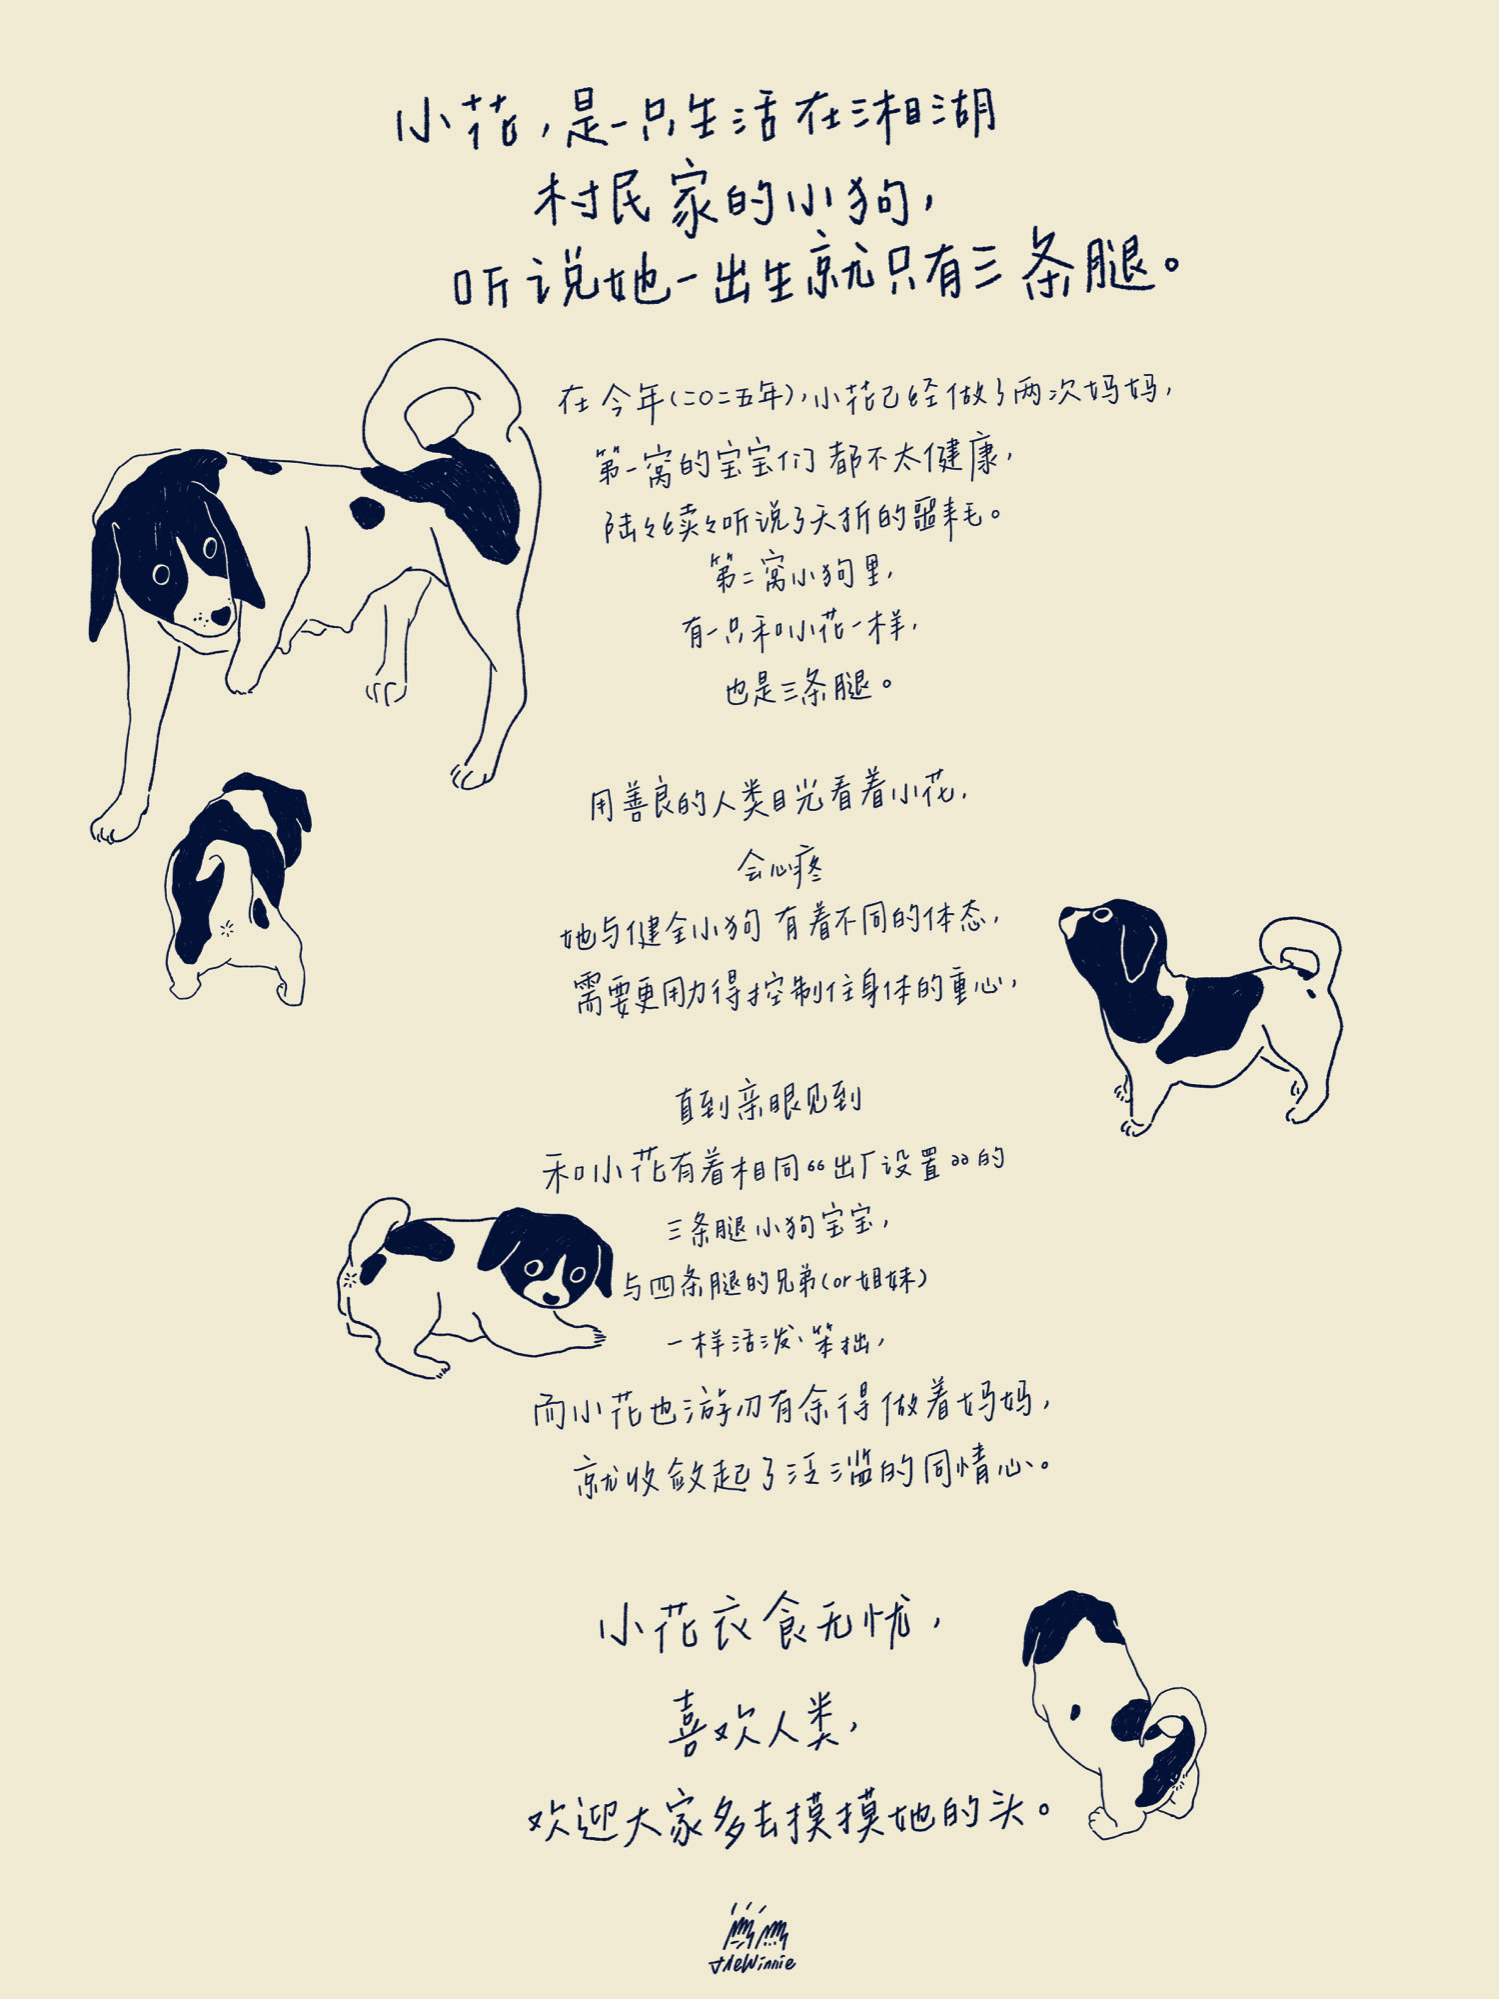 小花，是一只生活在湘湖
村民家的小狗，
听说她一出生就只有三条腿。
在今年(二〇二五年)，小花已经做了两次妈妈，
第一窝的宝宝们都不太健康，
陆々续々听说了夭折的噩耗。
第二窝小狗里，
有一只和小花一样，
也是三条腿。
用善良的人类目光看着小花，
会心疼
她与健全小狗有着不同的体态，
需要更用力得控制住身体的重心，
直到亲眼见到
和小花有着相同“出厂设置”的
三条腿小狗宝宝，
与四条腿的兄弟(or姐妹)
一样活泼、笨拙，
而小花也游刃有余得做着妈妈，
就收敛起了泛滥的同情心。
小花衣食无忧，
喜欢人类，
欢迎大家多去摸摸她的头。